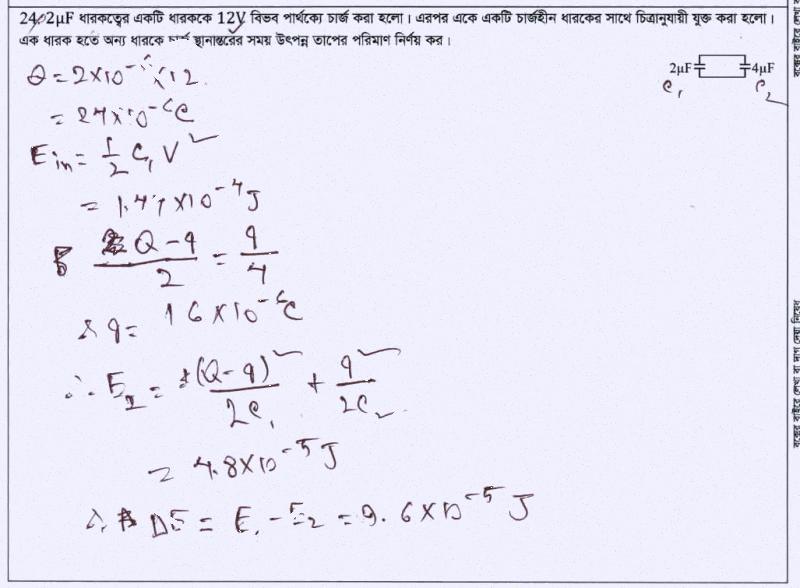 24. 2μF ধারকত্বের একটি ধারককে 12V বিভব পার্থক্যে চার্জ করা হলো। এরপর একে একটি চার্জহীন ধারকের সাথে চিত্রানুযায়ী যুক্ত করা হলো।
এক ধারক হতে অন্য ধারকে চার্জ স্থানান্তরের সময় উৎপন্ন তাপের পরিমাণ নির্ণয় কর।
2μF 4μF
C₁ C₂
Q = 2×10⁻⁶×12
= 24×10⁻⁶C
E_in = 1/2 C₁V²
= 1.44×10⁻⁴J
(Q-q)/2 = q/4
q = 16×10⁻⁶C
∴ E₂ = (Q-q)²/2C₁ + q²/2C₂
= 4.8×10⁻⁵J
∴ ΔE = E₁-E₂ = 9.6×10⁻⁵ J
বক্সের বাইরে লেখা বা দাগ দেয়া নিষেধ